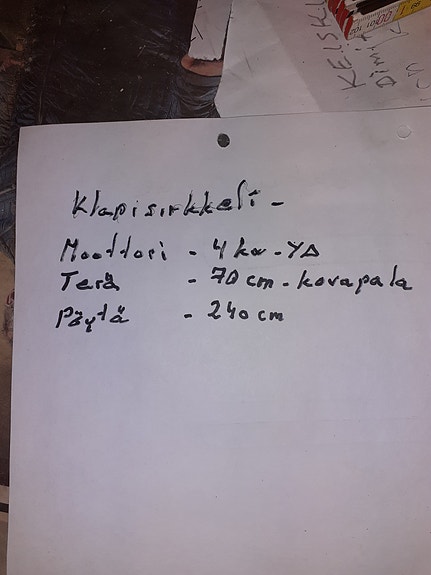 KEISKI
Dimi
Klapisirkkeli -
Moottori - 4 kw - Y∆
Terä - 70 cm - kovapala
Pöytä - 240 cm